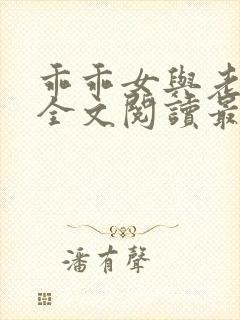 乖乖女與老
全文閱讀最
潘有聲